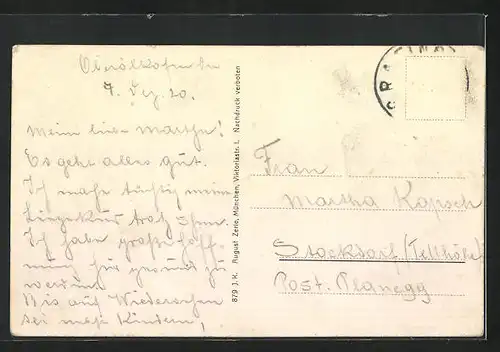 7. Dez. 20.
Mein lieber Martha!
Es geht alles gut.
Ich mache tüchtig meine
Liegekur trotz
Ich habe große Hoff-
nung hier gesund zu
werden
Bis auf Wiedersehen
Kindern,
879 J. K. August Zerle, München, Viktoriastr. I. Nachdruck verboten
Frau
Martha Kapsch
Stockdorf (Tellhöhe)
Post. Planegg